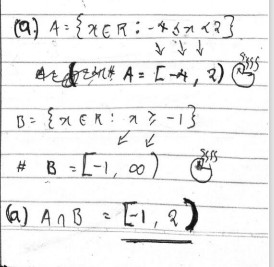 (a.) A = {x ∈ R : -4 ≤ x < 2}
A = [-4, 2)
B = {x ∈ R : x ≥ -1}
# B = [-1, ∞)
(a) A ∩ B = [-1, 2)